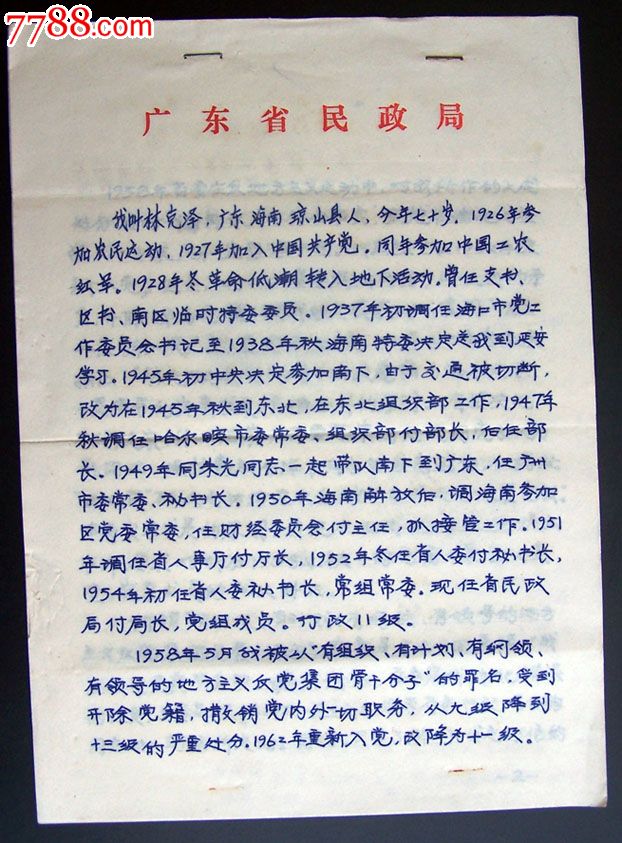 7788.com
广东省民政局
我叫林克泽，广东海南琼山县人，今年七十岁。1926年参
加农民运动，1927年加入中国共产党，同年参加中国工农
红军。1928年冬革命低潮转入地下活动。曾任支书、
区书、南区临时特委委员。1937年初调任海口市党工
作委员会书记至1938年秋海南特委决定送我到延安
学习。1945年初中央决定参加南下，由于交通被切断，
改为在1945年秋到东北，在东北组织部工作，1947年
秋调任哈尔滨市委常委、组织部付部长，后任部
长。1949年同朱光同志一起带队南下到广东，任广州
市委常委、秘书长。1950年海南解放后，调海南参加
区党委常委，任财经委员会付主任，抓接管工作。1951
年调任省人事厅付厅长，1952年冬任省人委付秘书长，
1954年初任省人委秘书长，党组常委。现任省民政
局付局长，党组成员。行政11级。
1958年5月我被以“有组织、有计划、有纲领、
有领导的地方主义反党集团骨干分子”的罪名，受到
开除党籍，撤销党内外一切职务，从九级降到
十三级的严重处分。1962年重新入党，改降为十一级。